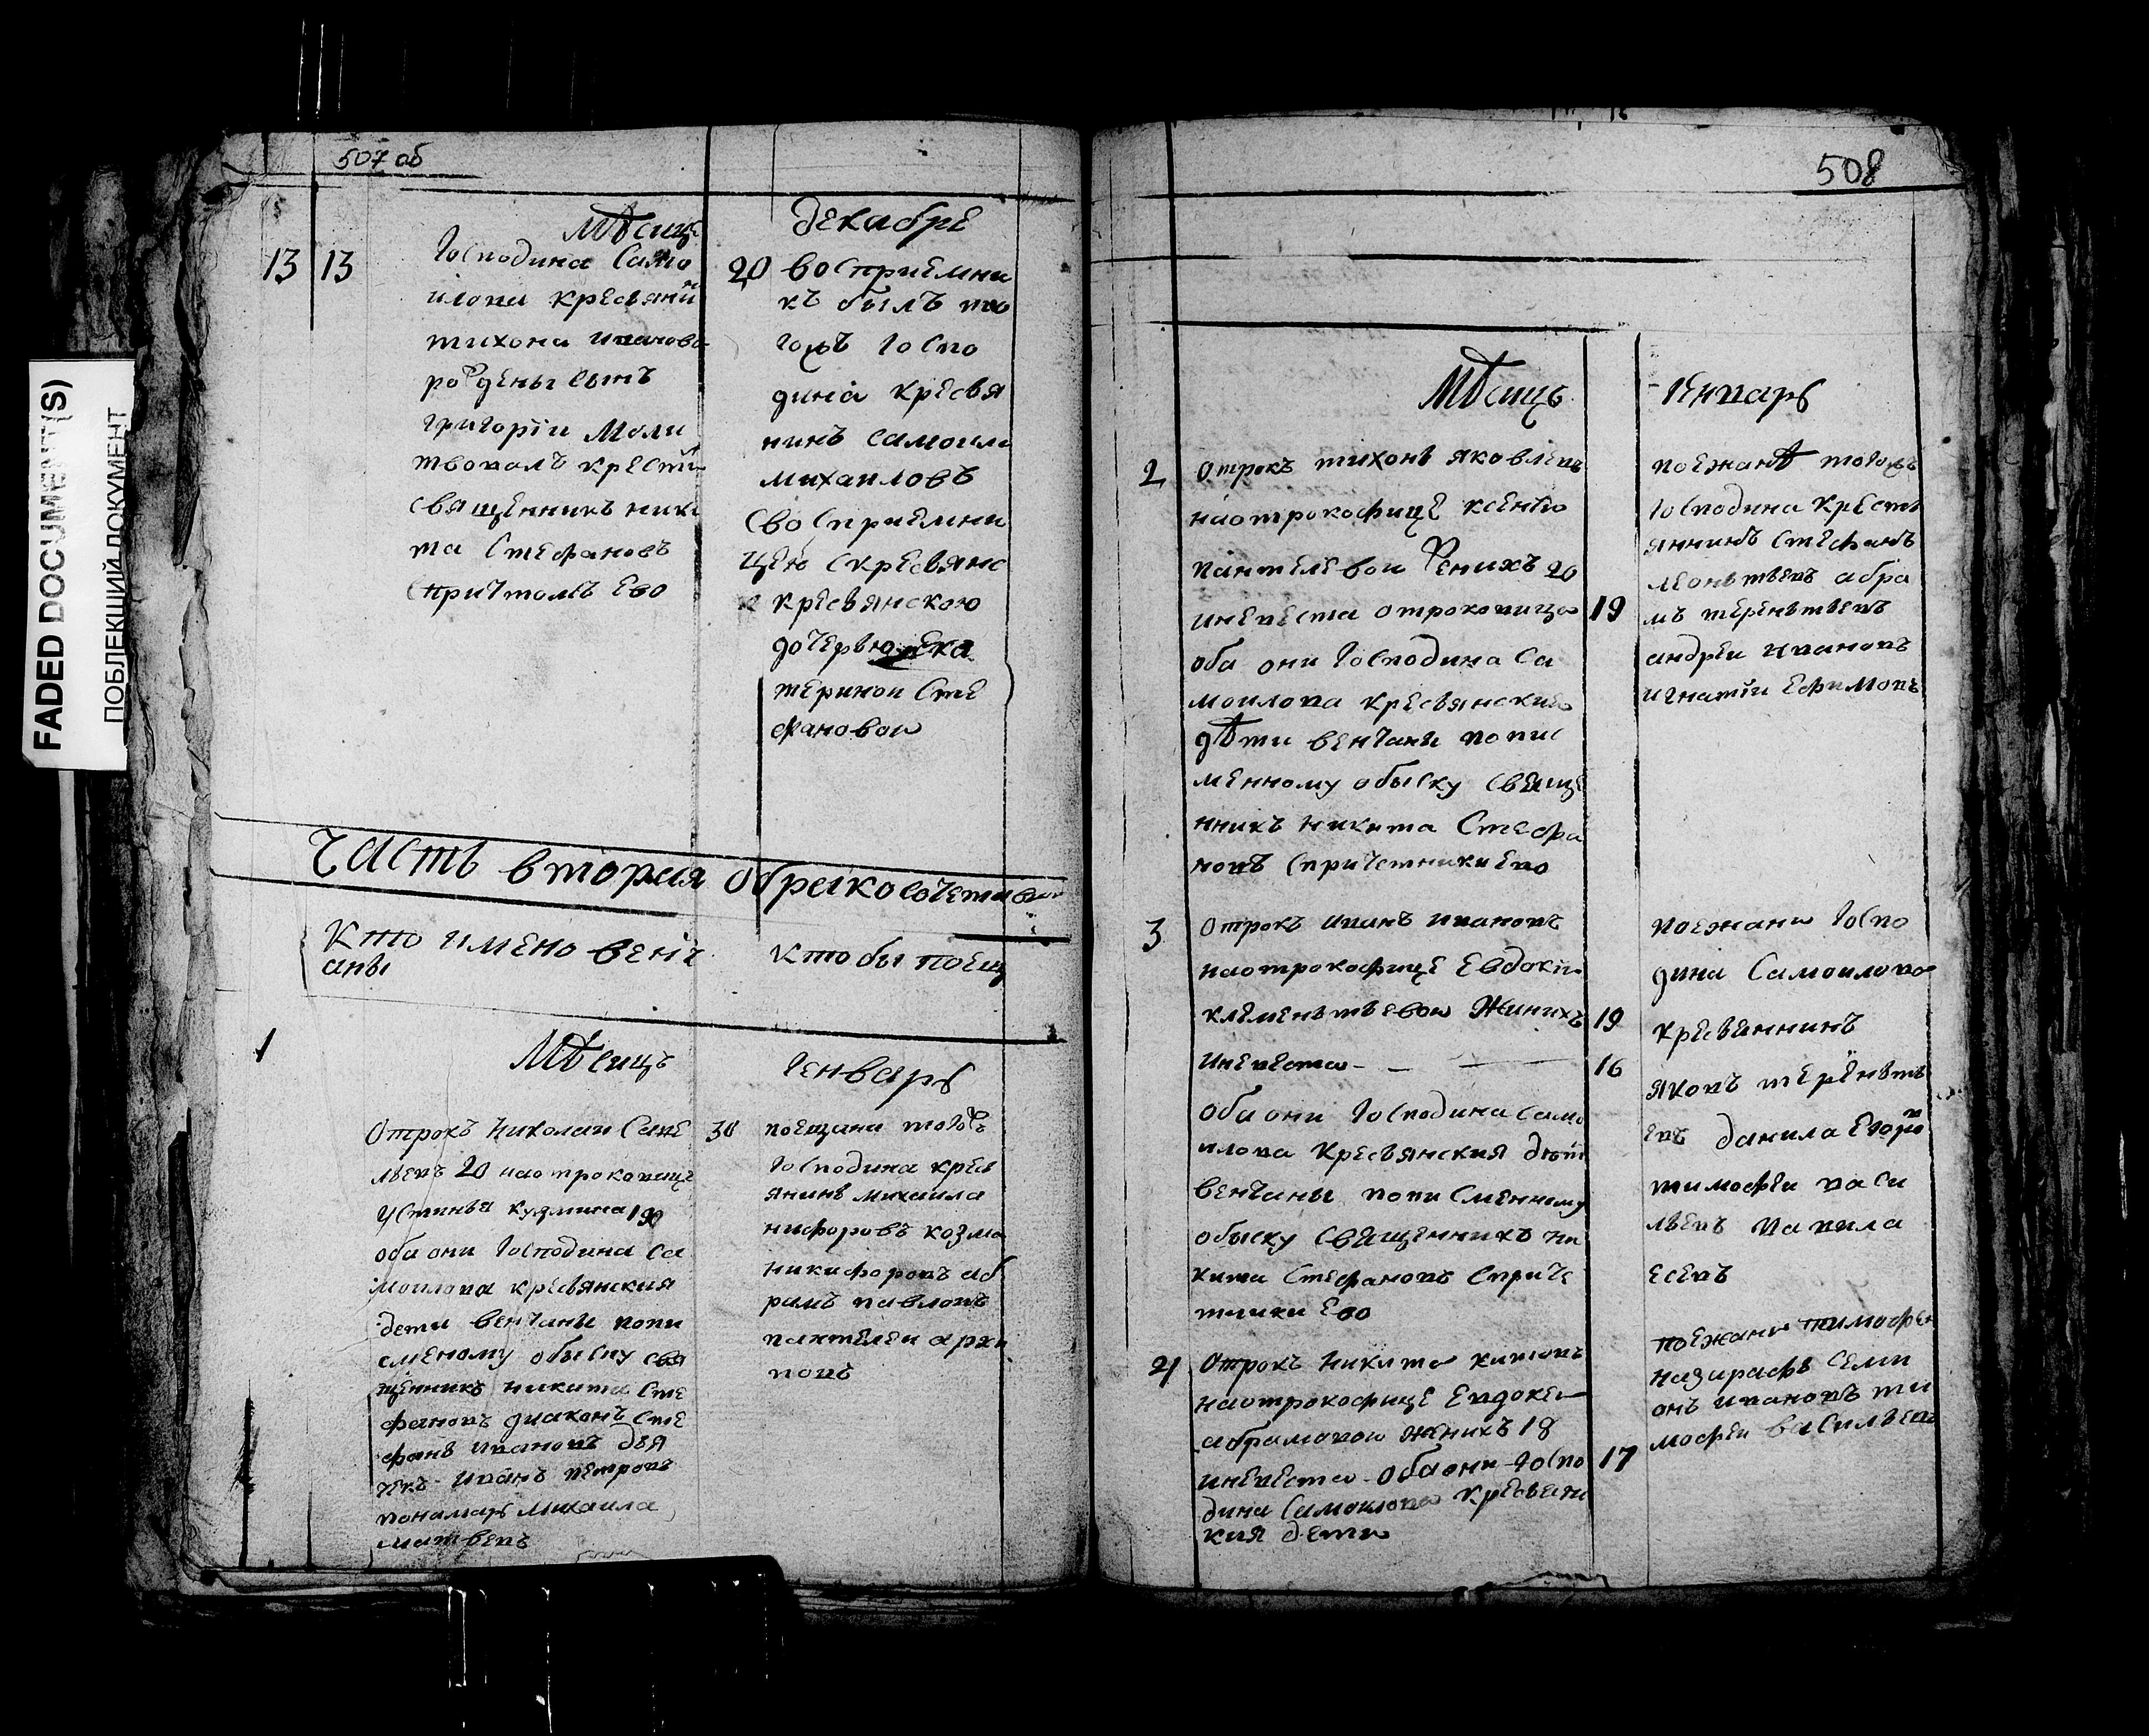 FADED DOCUMENT(S)
ПОБЛЕКШИЙ ДОКУМЕНТ
507 об
Мѣсицъ
декабрЕ
13 13
Господина Само
илова крестянин
тихона иванова
рождены сынъ
григории Моли
твовалъ крестил
священникъ ники
та Стефановъ
спричтомъ Ево
20 восприемни
къ былъ тo
гожъ Госпо
дина крестя
нинъ самоила
михаиловъ
Своспримни
цею скрестянс
крестянскою
дочерью Ека
териной Сте
фановои
Часть вторая обракосочетавши
Кто имено венч
аны
кто бы поещ
1
Мѣсицъ
Генварь
Отрокъ николаи Саве
льевъ 20 наотроковице
Устинья кузмина 19
оба они Господина Са
моилова крестянския
дети венчаны попи
сменому обыску свя
щенникъ никита Сте
фановъ диаконъ Сте
фанъ ивановъ дья
чекъ иванъ петровъ
понамарь михаила
матвевъ
30 поещани тогожъ
Господина крест
янинъ михаила
нифоровъ козма
никифоровъ аб
рамъ павловъ
пантелеи архи
повъ
508
Мѣсицъ
Генварь
2 отрокъ тихонъ яковлевъ
наотрокофице ксению
пантелевои Женихъ 20
иневеста отроковица 19
оба они Господина Са
моилова крестянские
дѣти венчаны попис
менному обыску Свяще
нникъ никита Стефа
новъ спричетники Ево
поежанѣ тогожъ
Господина крестъ
яннинъ Стефанъ
леонътьевъ абра
мъ терентьевъ
андреи ивановъ
игнатии Ефимовъ
3 Отрокъ иванъ ивановъ
наотрокофице Евдокии
клеменътьевои Жинихъ 19
иневеста - - - 16
Оба они Господина само
илова крестянския дѣти
венчаны попи Сменному
обыску священникъ ни
кита Стефановъ Сприче
тники Ево
поежани Госпо
дина Самоилова
крестяннинъ
яковъ терёнътьв
евъ данила Егоро
тимофеи васи
льевъ вавила
есевъ
4 Отрокъ никита китовъ
наотрокофице Евдокеи
абрамовои женихъ 18
иневеста - Оба они - Госпо 17
дина Самоилова крестян
кия дети
поежани тимофеи
назирафъ Семи
онъ ивановъ ти
мофеи васильевъ